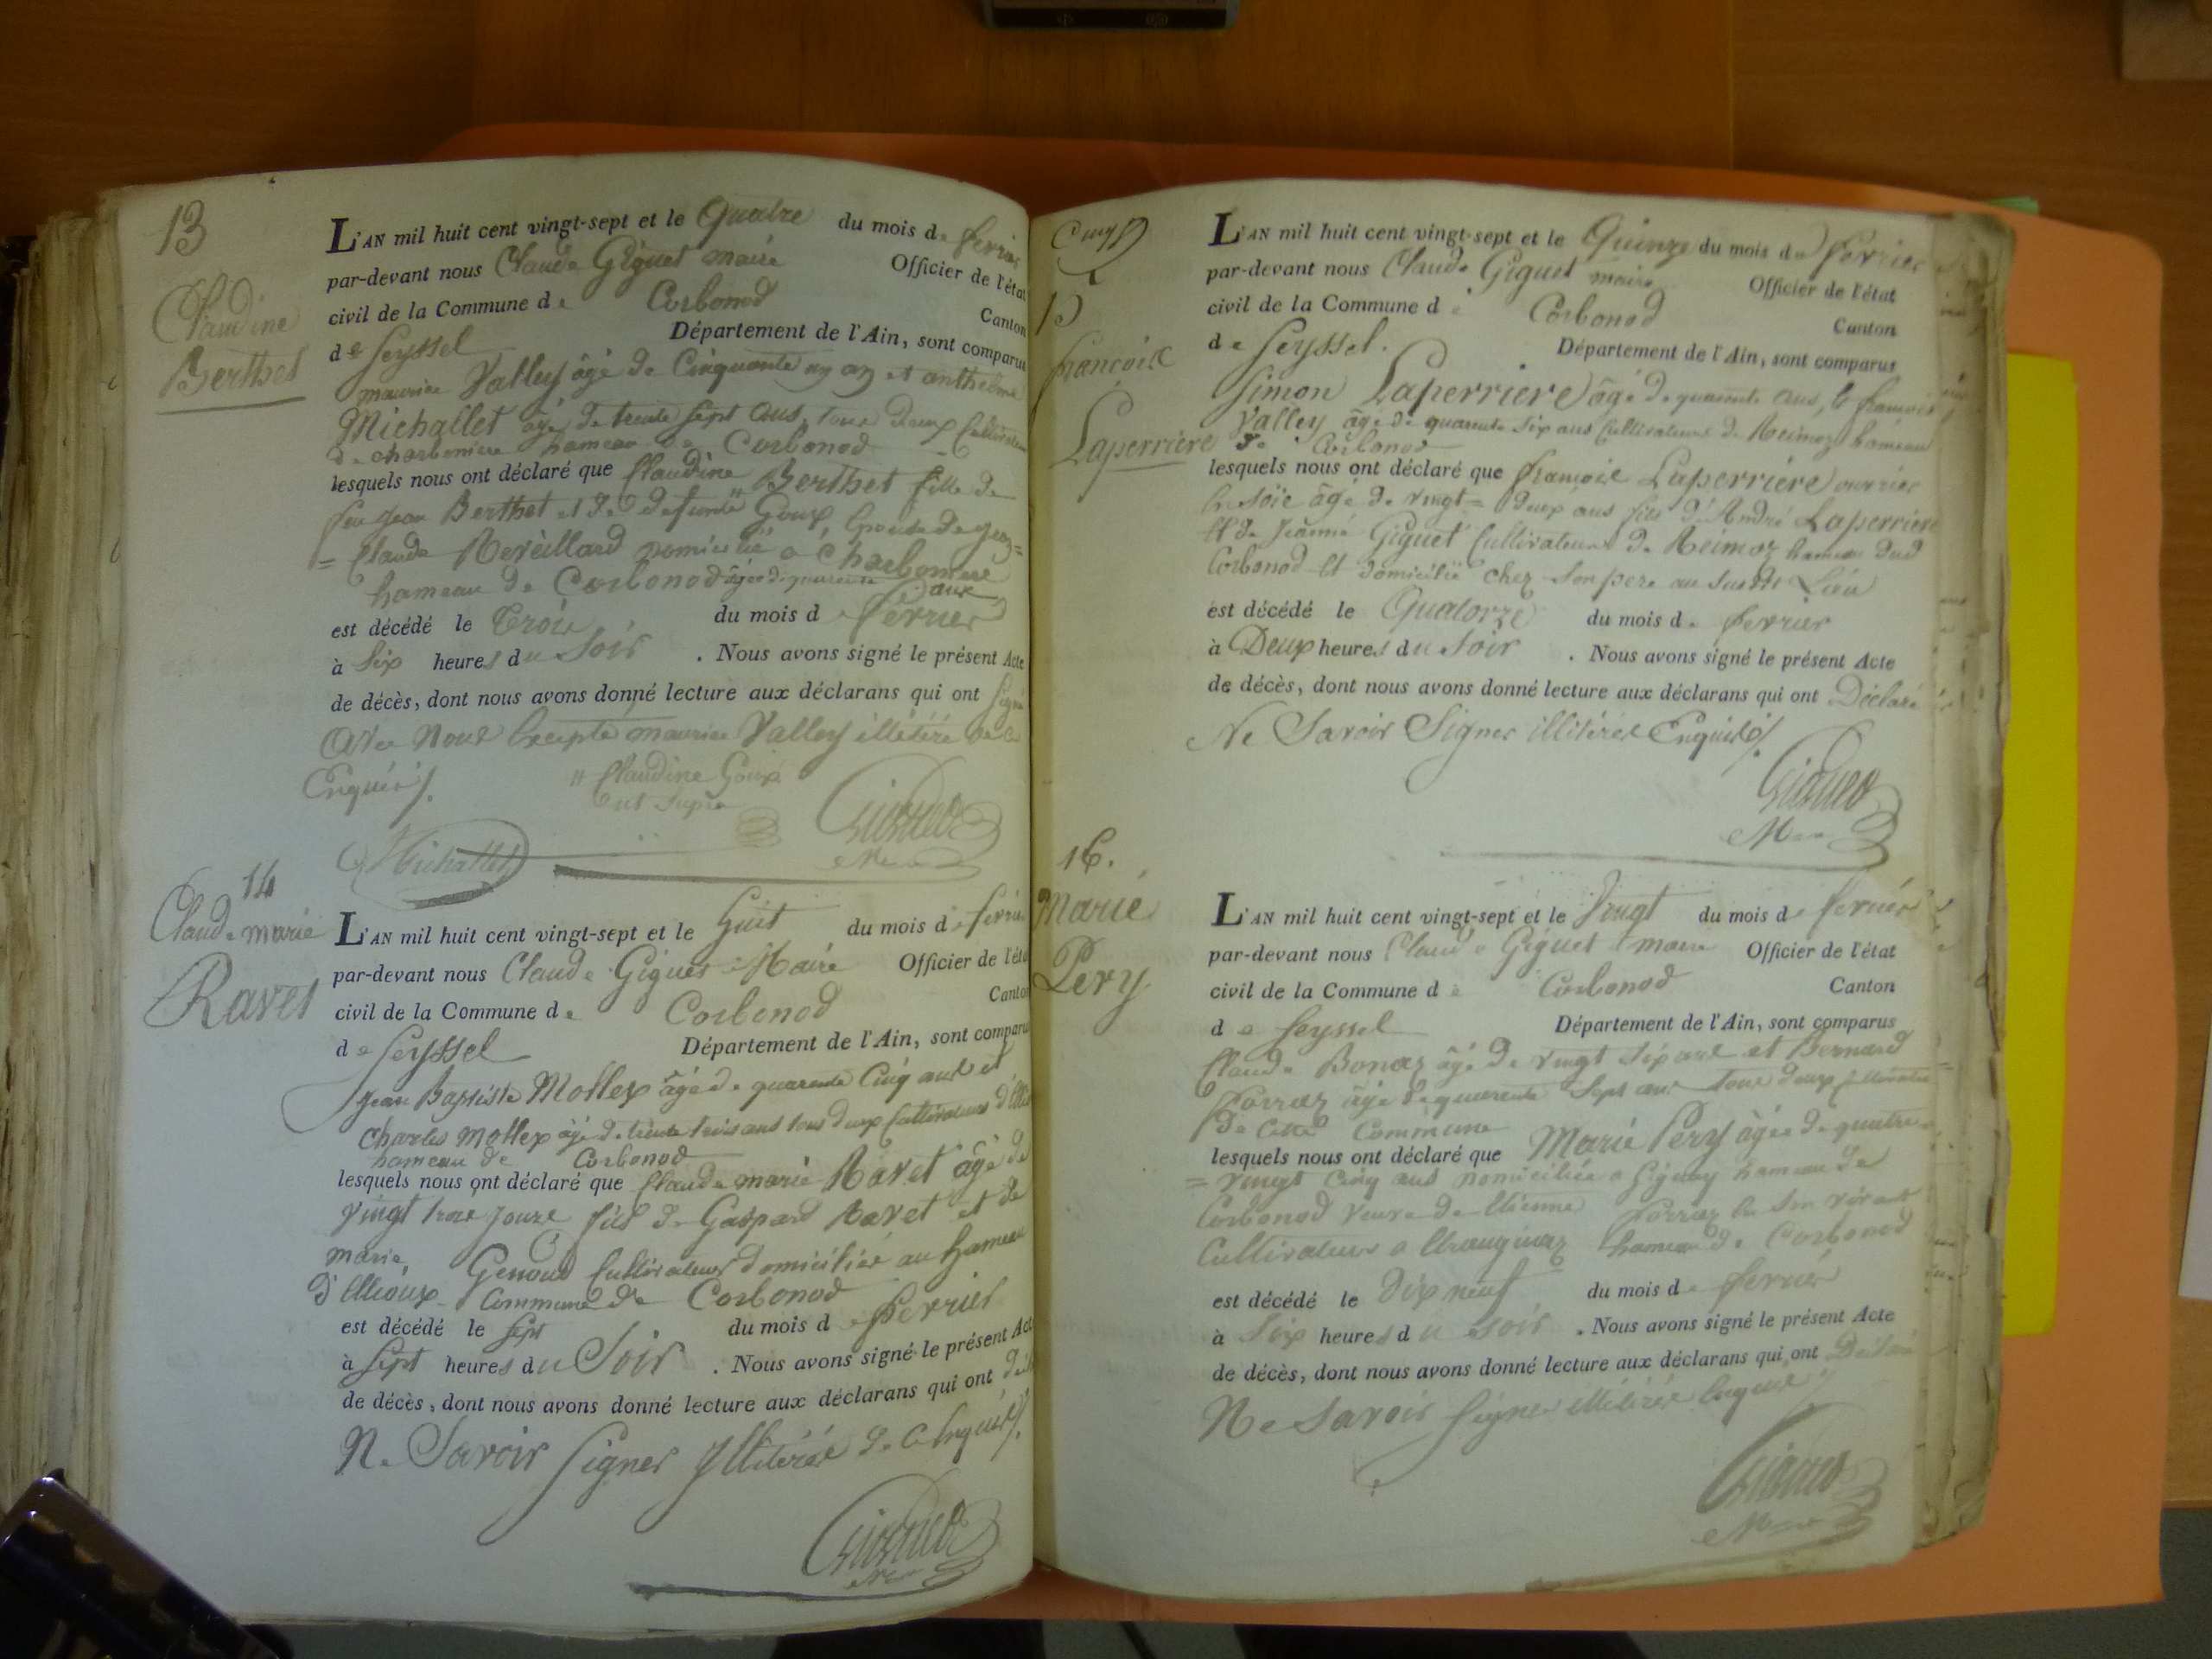 13
Claudine
Berthet
L'AN mil huit cent vingt-sept et le Quatre du mois de fevrier
par-devant nous Claude Giguet maire Officier de l'état
civil de la Commune de Corbonod Canton
de Seyssel Département de l'Ain, sont comparus
maurice Valley âgé de Cinquante un an et anthelme
Michallet âgé de trente sept ans, tous deux Cultivateurs
de charboniere hameau de Corbonod
lesquels nous ont déclaré que Claudine Berthet fille de
feu jean Berthet et de defunte " Goux, Epouse de jean=
= Claude Revèillard domicilié a Charboniere
hameau de Corbonod âgée de quarente ans
est décédé le Trois du mois de fevrier
à Six heures du Soir . Nous avons signé le présent Acte
de décès, dont nous avons donné lecture aux déclarans qui ont Signé
avec Nous Excepté maurice Valley illétéré de ce
Enquis ⁄.
" Claudine Goux
ut supra
Michallet
Giguet
Mre
14
Claude marie
Ravet
L'AN mil huit cent vingt-sept et le huit du mois de fevrier
par-devant nous Claude Giguet Maire Officier de l'état
civil de la Commune de Corbonod Canton
de Seyssel Département de l'Ain, sont comparus
Jean Baptiste Mollex âgé de quarente Cinq ans et
Charles Mollex âgé de trente trois ans tous deux Cultivateurs
hameau de Corbonod
lesquels nous ont déclaré que Claude marie Ravet âgé de
vingt trois jours fils de Gaspard Ravet et de
marie Genoud Cultivateurs domiciliés au hameau
Commune de Corbonod
est décédé le Sept du mois de fevrier
à Sept heures du Soir . Nous avons signé le présent Acte
de décès, dont nous avons donné lecture aux déclarans qui ont
Ne Savoir Signer Illitérés de ce Enquis ⁄.
Giguet
Mre
15
francoise
Laperriere
L'AN mil huit cent vingt-sept et le Quinze du mois de fevrier
par-devant nous Claude Giguet maire Officier de l'état
civil de la Commune de Corbonod Canton
de Seyssel. Département de l'Ain, sont comparus
Simon Laperriere âgé de quarente ans, & francois
Valley âgé de quarente Six ans Cultivateurs de Reimoz hameau
de Corbonod
lesquels nous ont déclaré que francoise Laperriere ouvriere
En soïe âgé de vingt= deux ans fille d'André Laperriere
Et de Jeanne Giguet Cultivateurs de Reimoz hameau dud
Corbonod Et domicilié chez son pere au Susdit Lieu
est décédé le Quatorze du mois de fevrier
à Deux heures du Soir . Nous avons signé le présent Acte
de décès, dont nous avons donné lecture aux déclarans qui ont Déclaré
Ne Savoir Signer illitérés Enquis ⁄.
Giguet
Mre
16.
Marie
Pery
L'AN mil huit cent vingt-sept et le Vingt du mois de fevrier
par-devant nous Claude Giguet maire Officier de l'état
civil de la Commune de Corbonod Canton
de Seyssel Département de l'Ain, sont comparus
Claude Bonaz âgé de vingt Six ans et Bernard
âgé de quarente Sept ans tous deux Cultivateurs
de Cette Commune
lesquels nous ont déclaré que Marie Pery âgée de quatre
= vingt Cinq ans domiciliée a Gignay hameau de
Corbonod veuve de Etienne En Son vivant
Cultivateur a hameau de Corbonod
est décédé le Dix neuf du mois de fevrier
à Six heures du Soir . Nous avons signé le présent Acte
de décès, dont nous avons donné lecture aux déclarans qui ont Déclaré
Ne Savoir Signer illitérés Enquis
Giguet
Mre